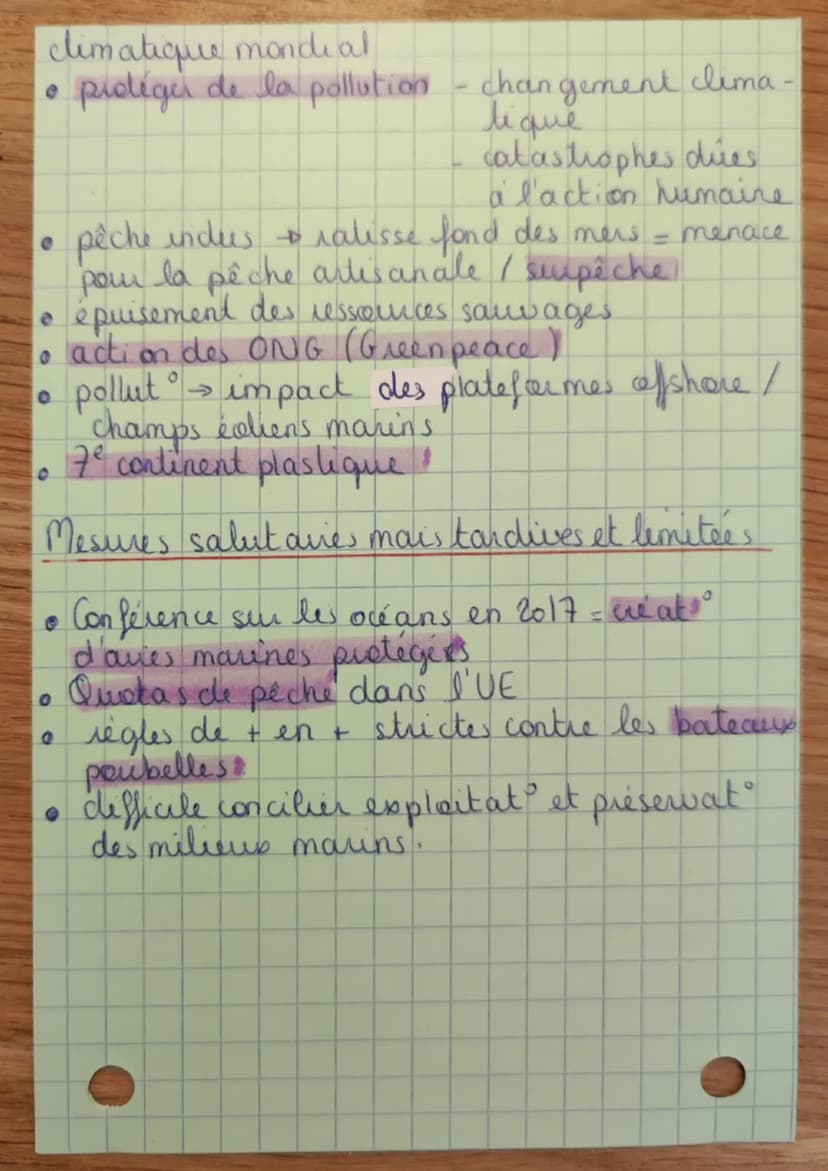 climatique mondial
• protéger de la pollution - changement clima-
tique
- catastrophes dûes
à l'action humaine
• pêche indus → ratisse fond des mers = menace
pour la pêche artisanale / surpêche
• épuisement des ressources sauvages
• action des ONG (Greenpeace)
• pollut° → impact des plateformes offshore /
champs éoliens marins
• 7e continent plastique
Mesures salutaires mais tardives et limitées
• Conférence sur les océans en 2017 = créat°
d'aires marines protégées
• Quotas de pêche dans l'UE
• règles de + en + strictes contre les bateaux
poubelles
• difficile concilier exploitat° et préservat°
des milieux marins.